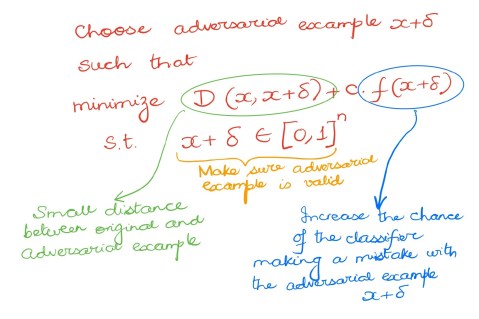 Choose adversarial example x+δ
such that
minimize D (x, x+δ) + c. f(x+δ)
s.t. x + δ ∈ [0,1]ⁿ
Make sure adversarial
example is valid
Small distance
between original and
adversarial example
Increase the chance
of the classifier
making a mistake with
the adversarial example
x+δ